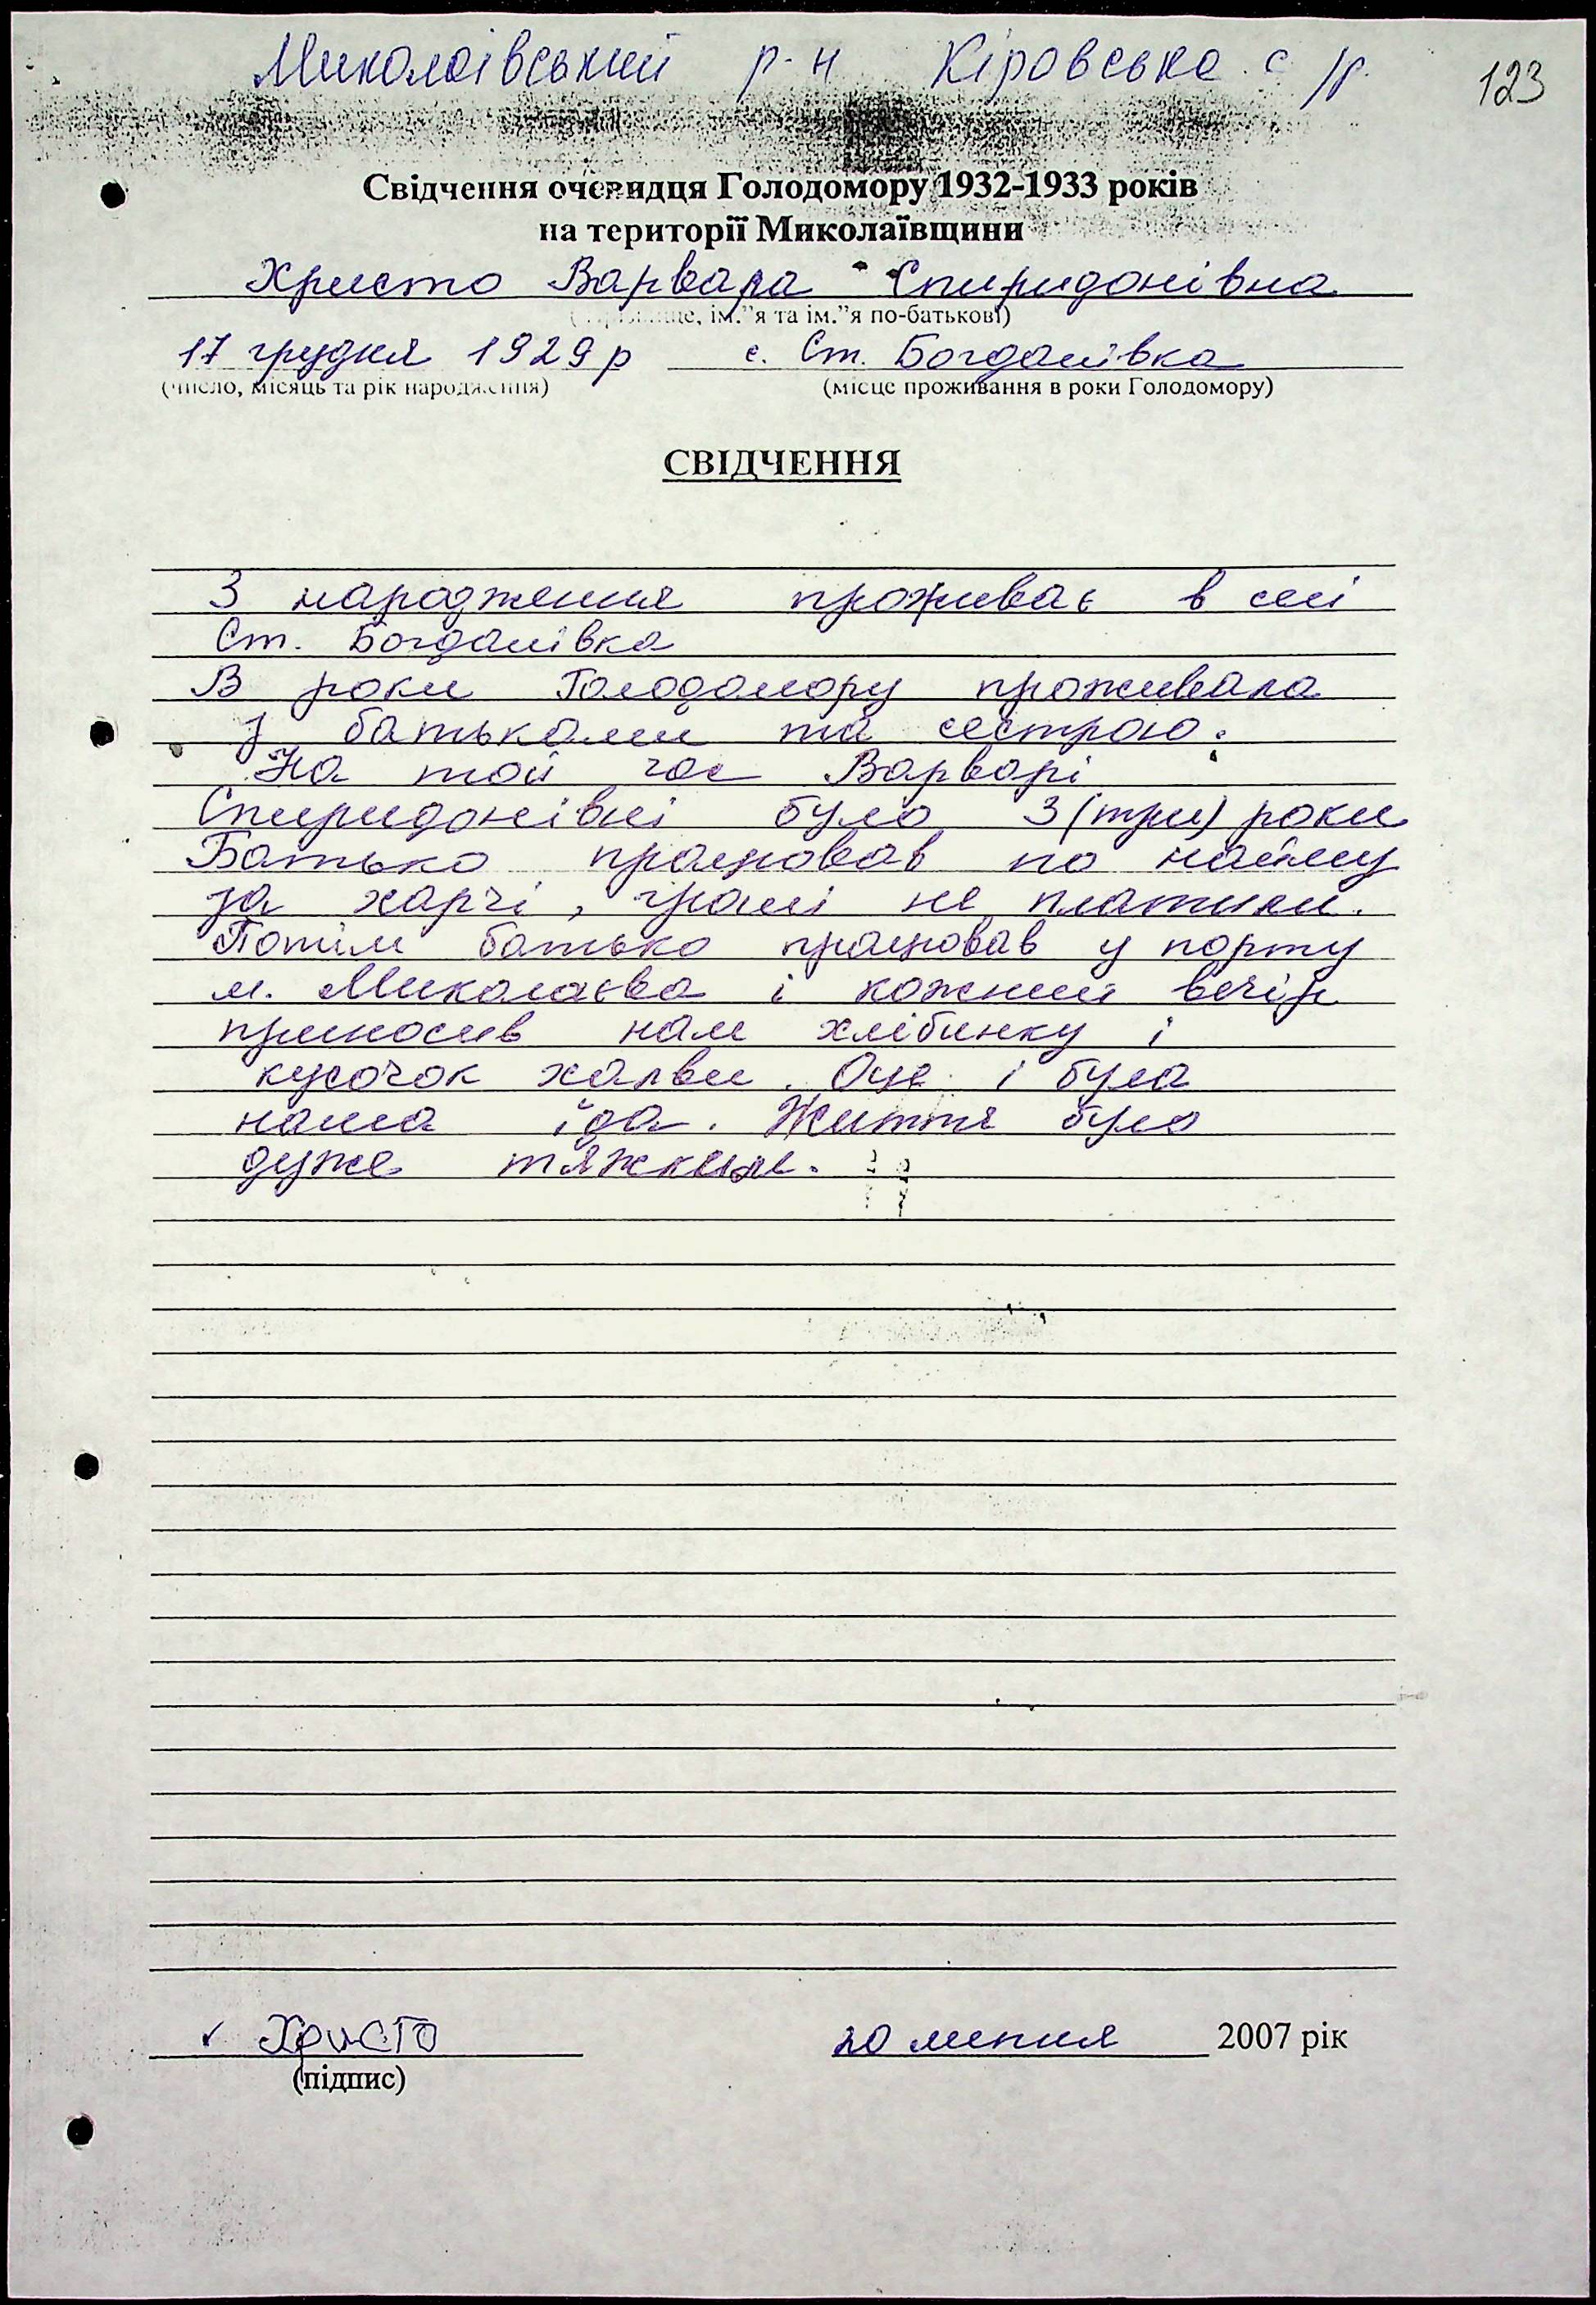 Миколаївський р-н Кіровська с/р.
123
Свідчення очевидця Голодомору 1932-1933 років
на території Миколаївщини
Христо Варвара Спиридонівна
(прізвище, ім."я та ім."я по-батькові)
17 грудня 1929 р с. Ст. Богданівка
(число, місяць та рік народження) (місце проживання в роки Голодомору)
СВІДЧЕННЯ
З народження проживає в селі
Ст. Богданівка
В роки Голодомору проживала
з батьками та сестрою.
На той час Варварі
Спиридонівні було 3 (три) роки
Батько працював по найму
за харчі, гроші не платили.
Потім батько працював у порту
м. Миколаєва і кожний вечір
приносив нам хлібинку і
кусочок халви. Оце і була
наша їда. Життя було
дуже тяжким.
✓ Христо 20 липня 2007 рік
(підпис)